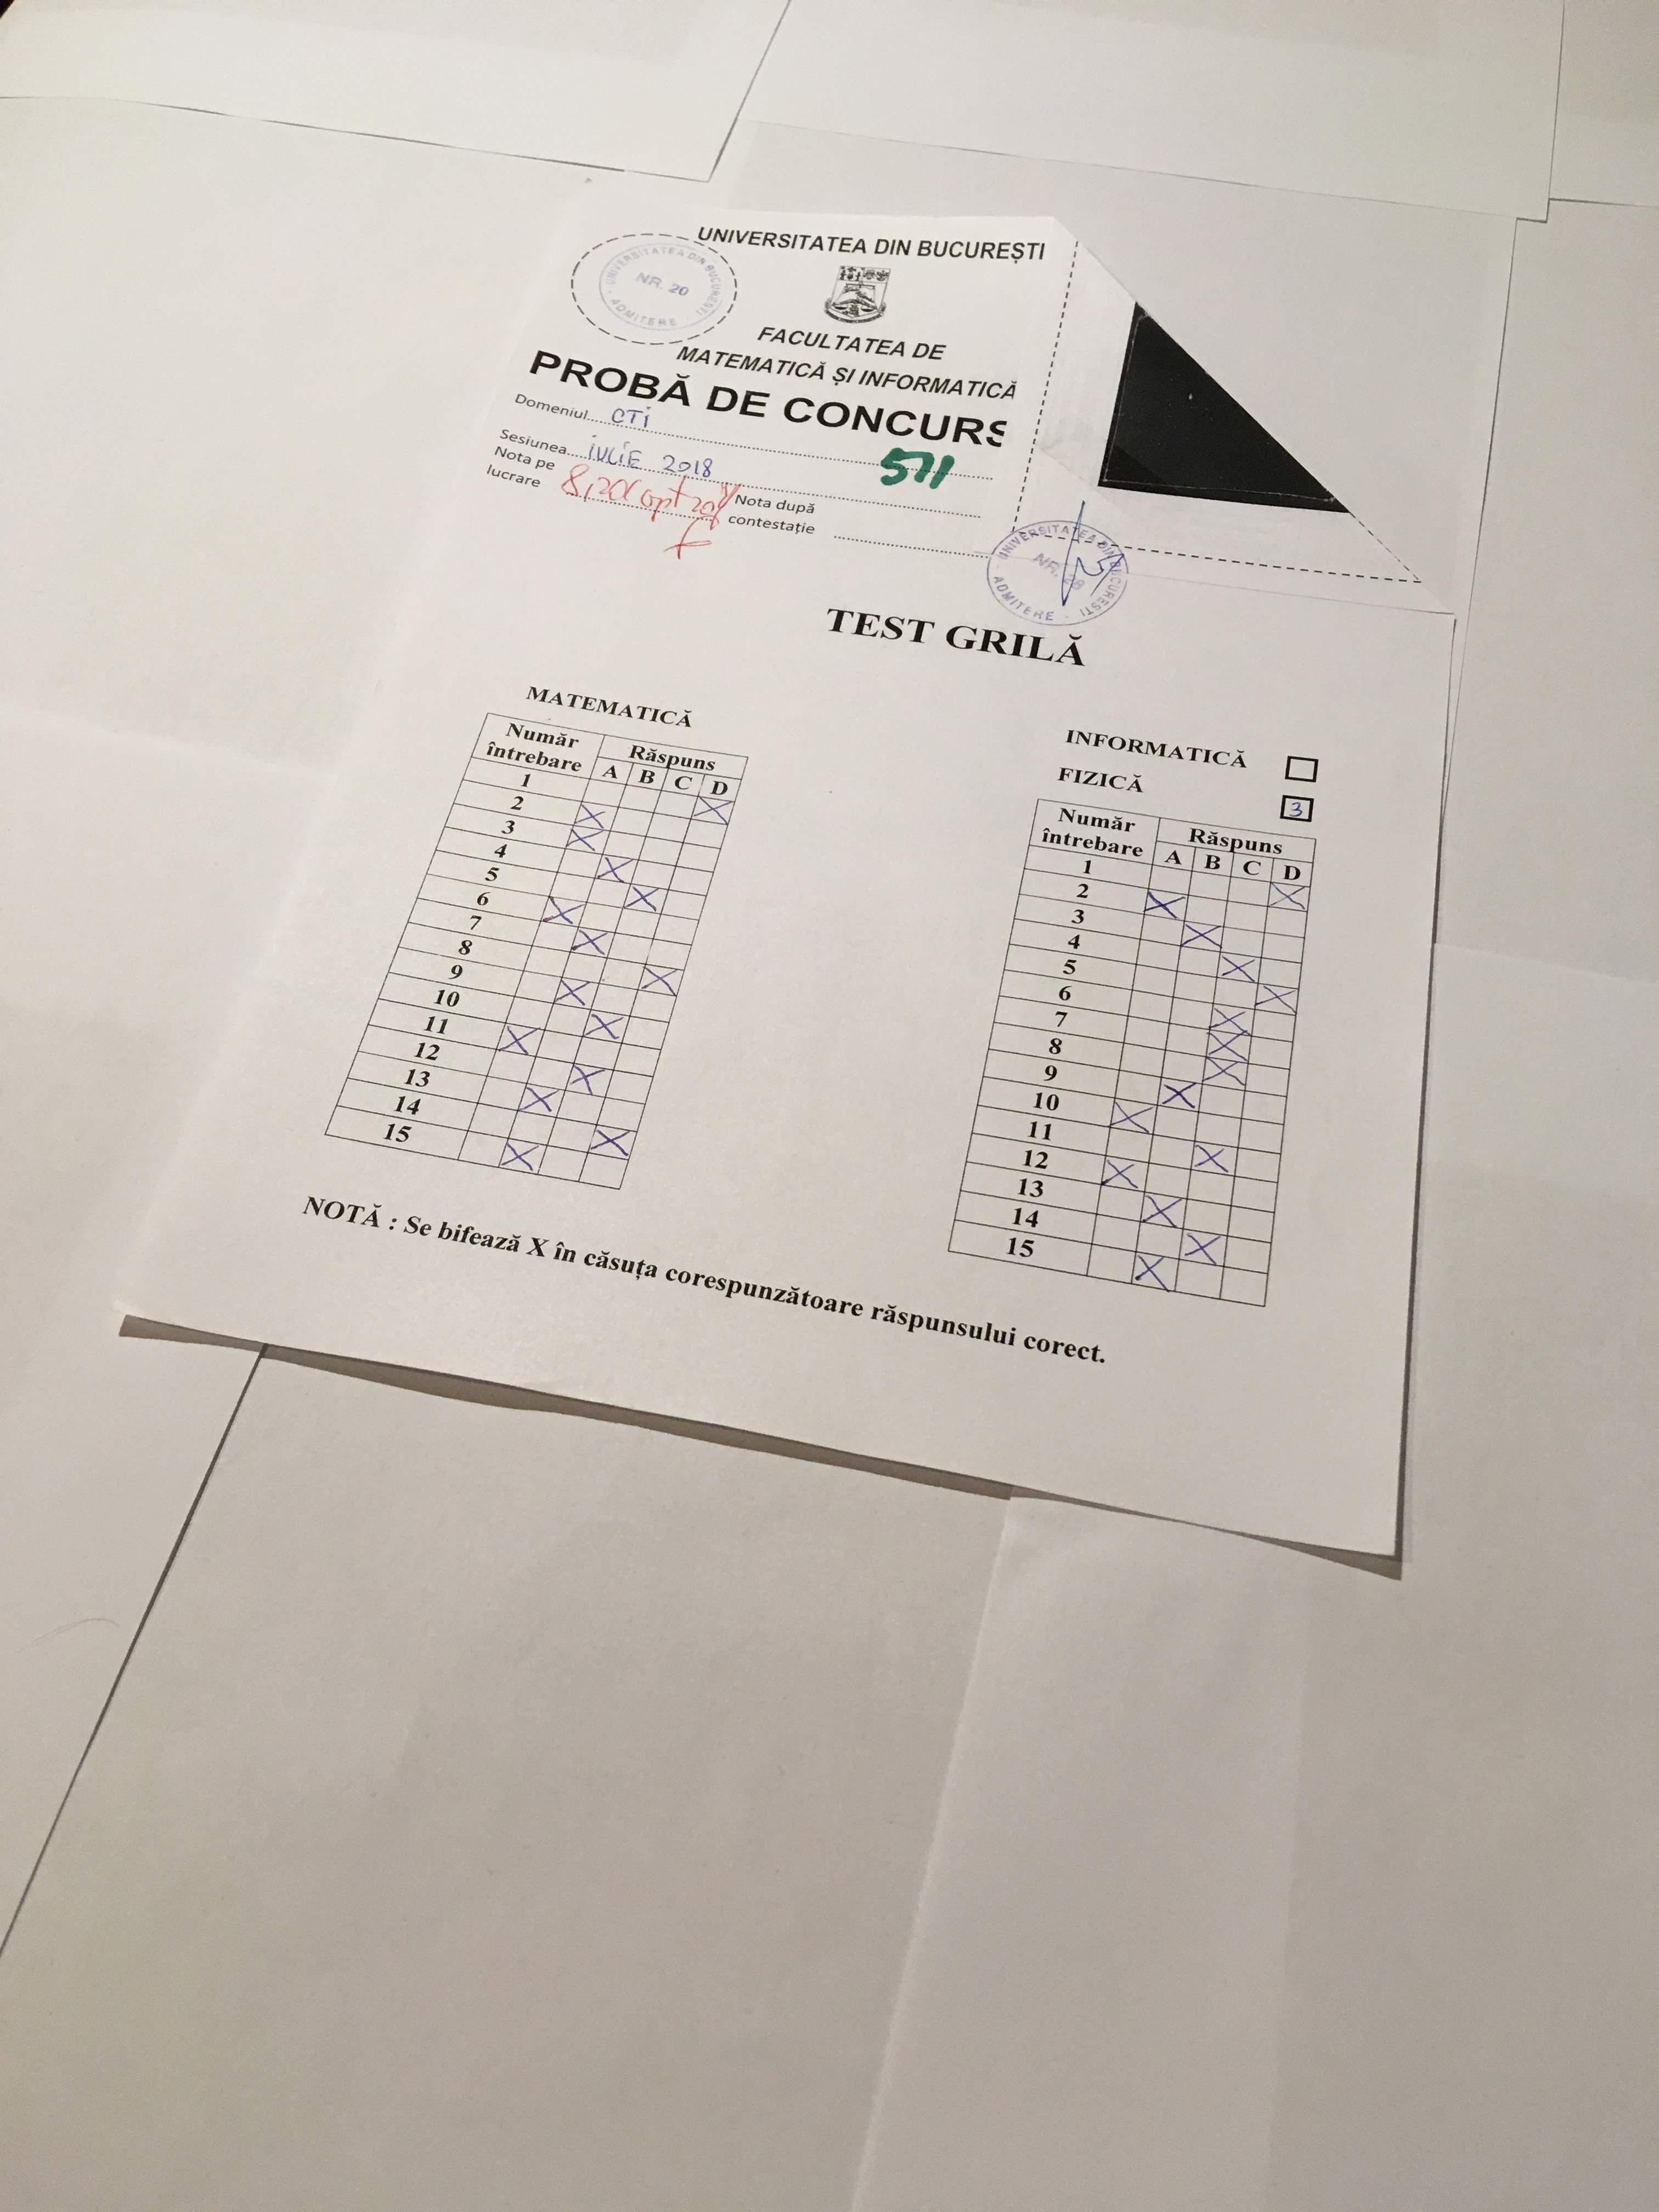 UNIVERSITATEA DIN BUCUREȘTI
UNIVERSITATEA DIN BUCUREȘTI
NR. 20
ADMITERE
FACULTATEA DE
MATEMATICĂ ȘI INFORMATICĂ
PROBĂ DE CONCURS
Domeniul.... CTI
Sesiunea... iULiE 2018
571
Nota pe
lucrare 8,20(opt 20%)
Nota după
contestație
UNIVERSITATEA DIN BUCUREȘTI
ADMITERE
TEST GRILĂ
MATEMATICĂ
Număr întrebare Răspuns
A B C D
1 X
2 X
3 X
4 X
5 X
6 X
7 X
8 X
9 X
10 X
11 X
12 X
13 X
14 X
15 X
INFORMATICĂ
FIZICĂ 3
Număr întrebare Răspuns
A B C D
1 X
2 X
3 X
4 X
5 X
6 X
7 X
8 X
9 X
10 X
11 X
12 X
13 X
14 X
15 X
NOTĂ : Se bifează X în căsuța corespunzătoare răspunsului corect.